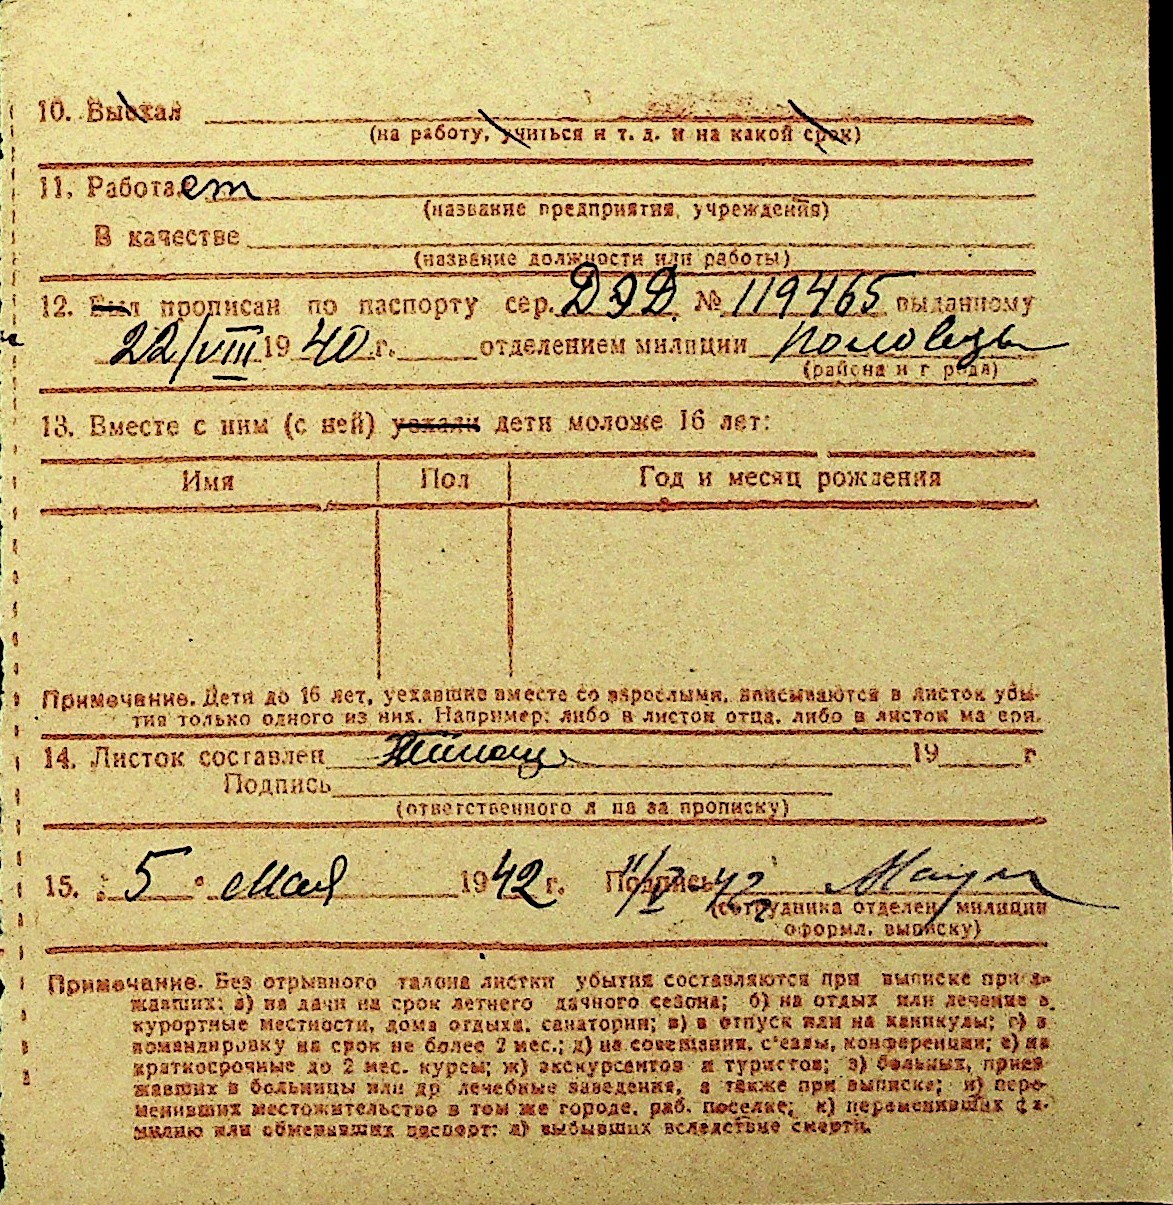 10. Выехал
(на работу, учиться и т. д. и на какой срок)
11. Работает
(название предприятия, учреждения)
В качестве
(название должности или работы)
12. Был прописан по паспорту сер. ДЭД № 119465 выданному
22/VIII 1940 г. отделением милиции
(района и города)
13. Вместе с ним (с ней) уехали дети моложе 16 лет:
Имя Пол Год и месяц рождения
Примечание. Дети до 16 лет, уехавшие вместе со взрослыми, вписываются в листок убы-
тия только одного из них. Например: либо в листок отца, либо в листок матери.
14. Листок составлен 19 г
Подпись
(ответственного лица за прописку)
15. "5" мая 1942 г. Подпись
(сотрудника отделен. милиции
оформл. выписку)
Примечание. Без отрывного талона листки убытия составляются при выписке приез-
жавших: а) на дачи на срок летнего дачного сезона; б) на отдых или лечение в
курортные местности, дома отдыха, санатории; в) в отпуск или на каникулы; г) в
командировку на срок не более 2 мес.; д) на совещания, с'езды, конференции; е) на
краткосрочные до 2 мес. курсы; ж) экскурсантов и туристов; з) больных, приез-
жавших в больницы или др лечебные заведения, а также при выписке; и) пере-
менивших местожительство в том же городе, раб. поселке; к) переменивших фа-
милию или обменявших паспорт; л) выбывших вследствие смерти.